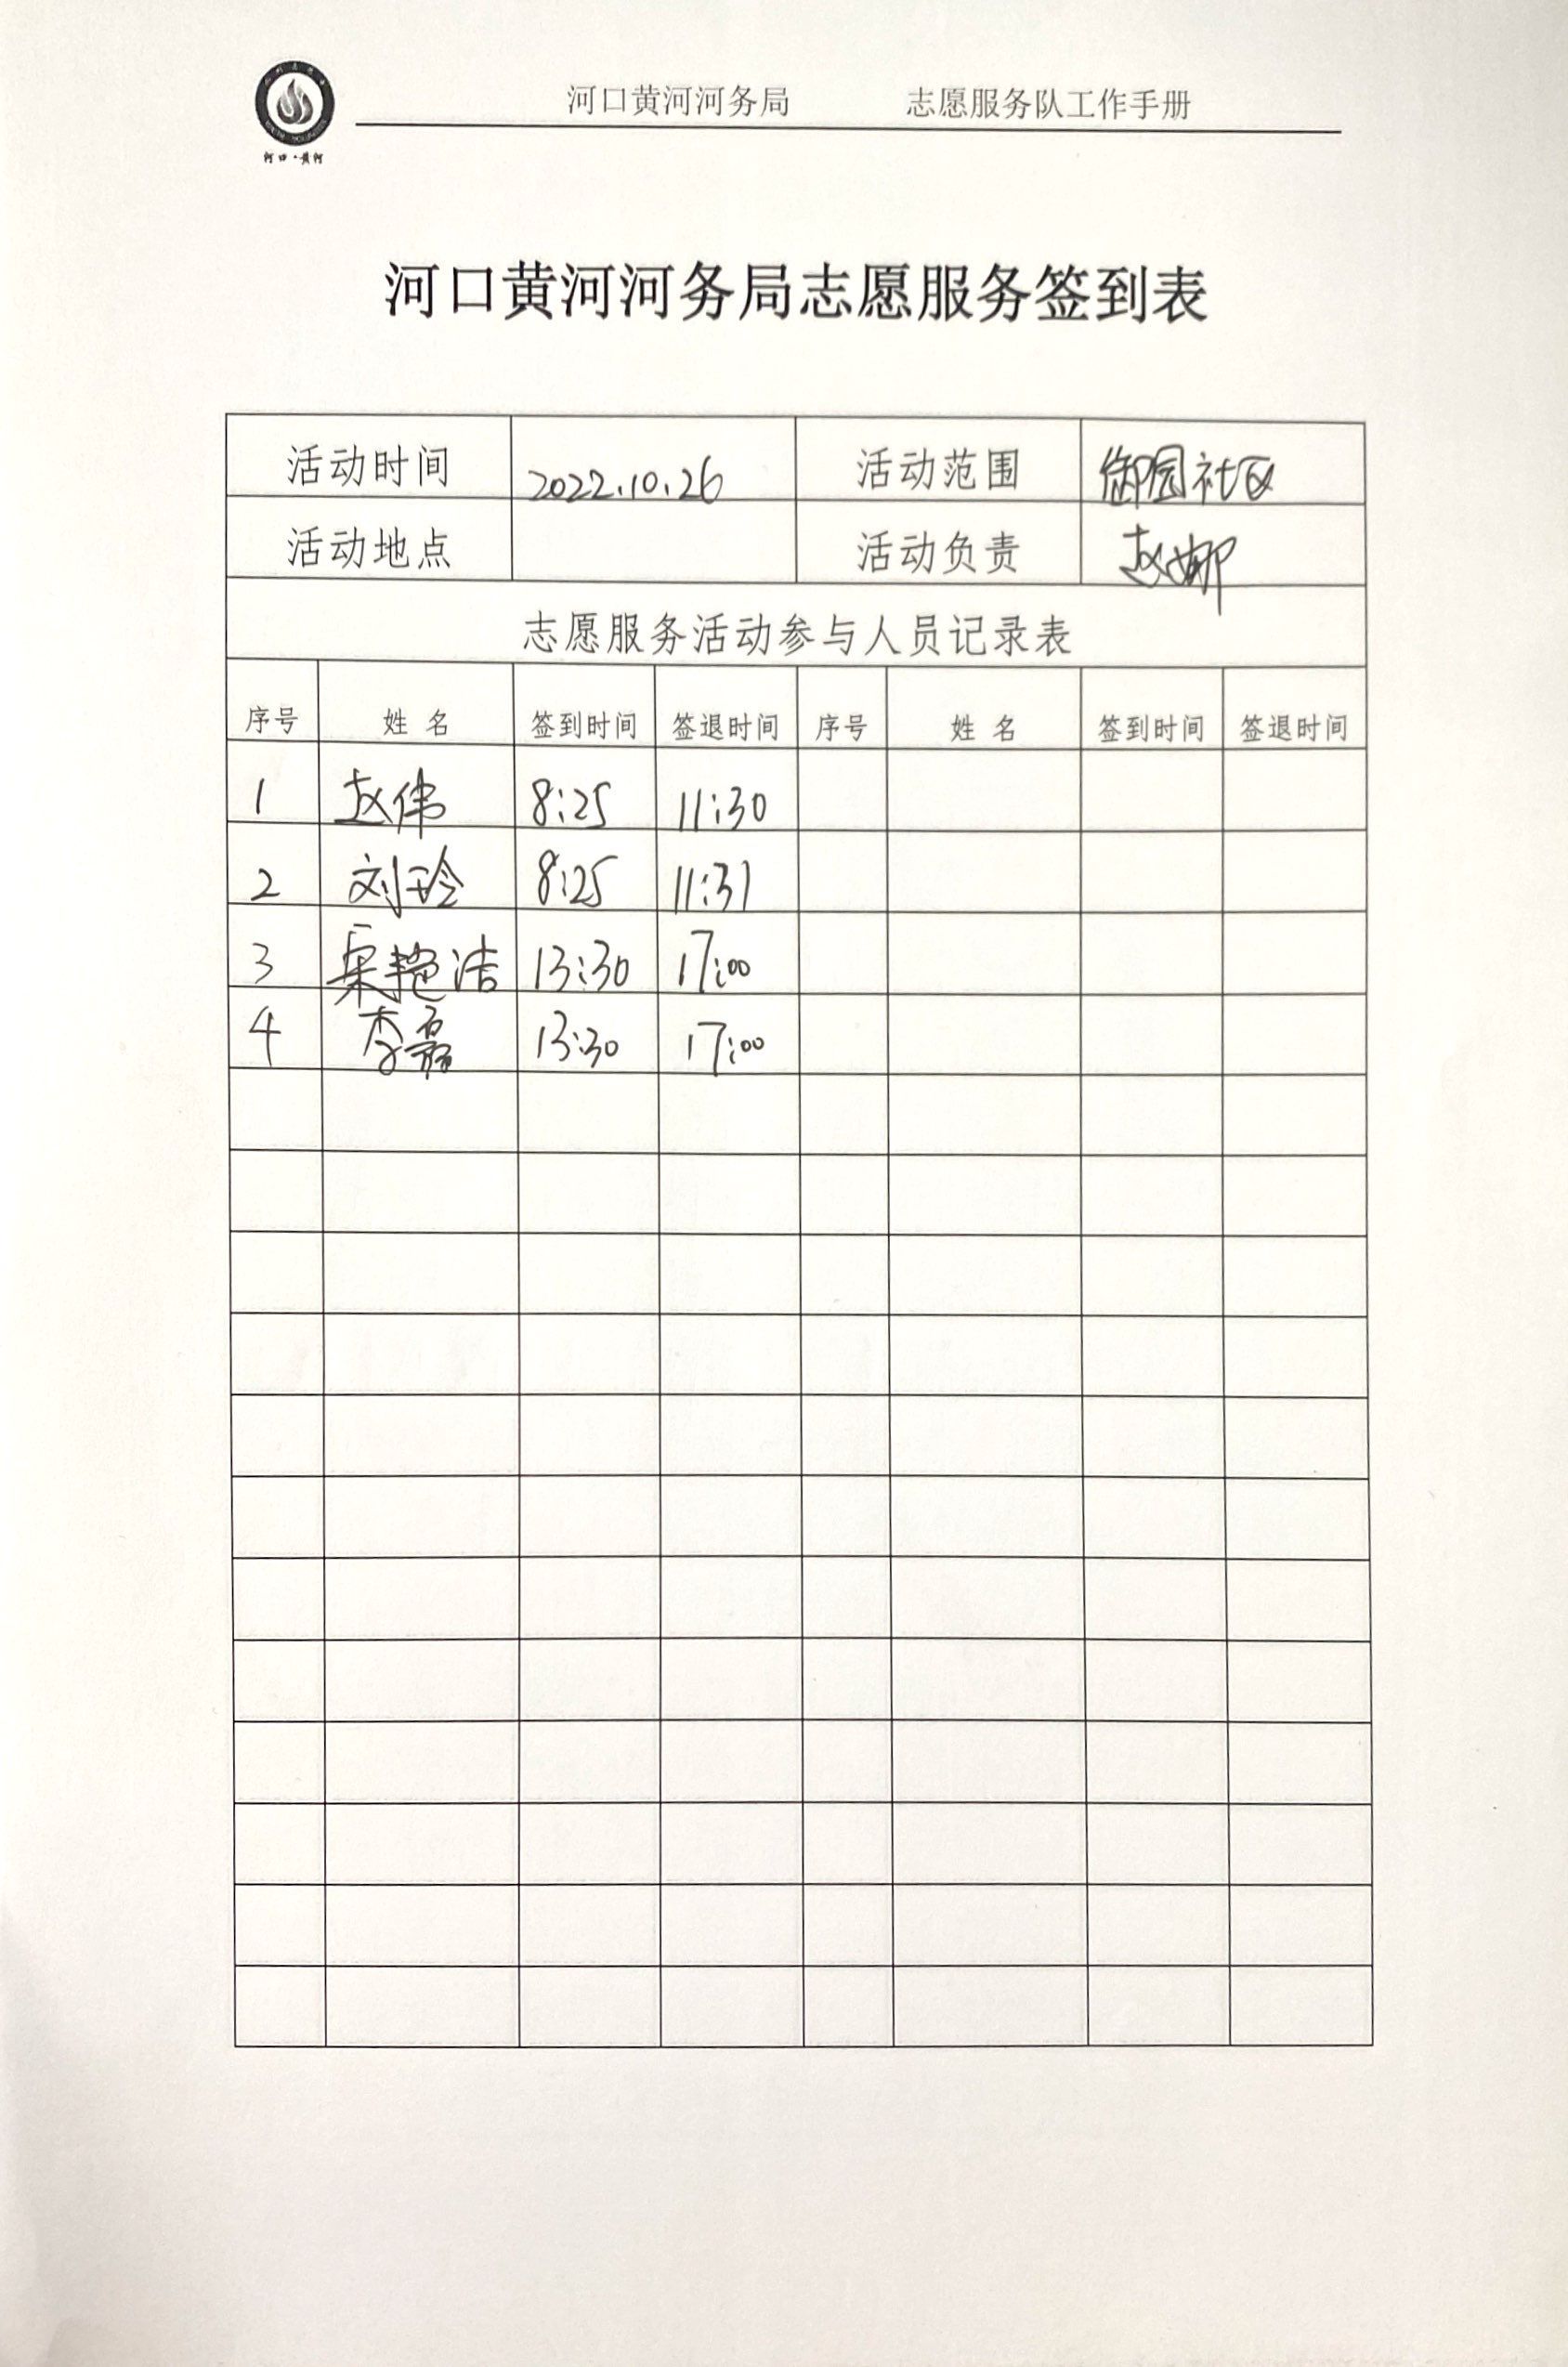 河口黄河河务局 志愿服务队工作手册
河口·黄河
河口黄河河务局志愿服务签到表
活动时间 2022.10.26 活动范围 御园社区
活动地点 活动负责 赵娜
志愿服务活动参与人员记录表
序号 姓名 签到时间 签退时间 序号 姓名 签到时间 签退时间
1 赵伟 8:25 11:30
2 刘玲 8:25 11:31
3 栗艳洁 13:30 17:00
4 李磊 13:30 17:00